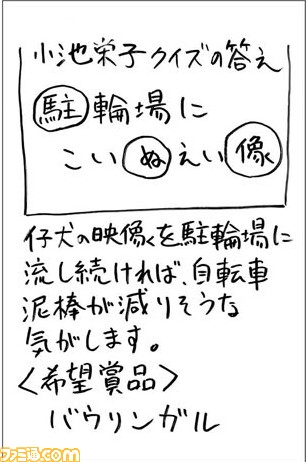 小池栄子クイズの答え
駐輪場に
こいぬえい像
仔犬の映像を駐輪場に
流し続ければ、自転車
泥棒が減りそうな
気がします。
<希望賞品>
バウリンガル
ファミ通.com